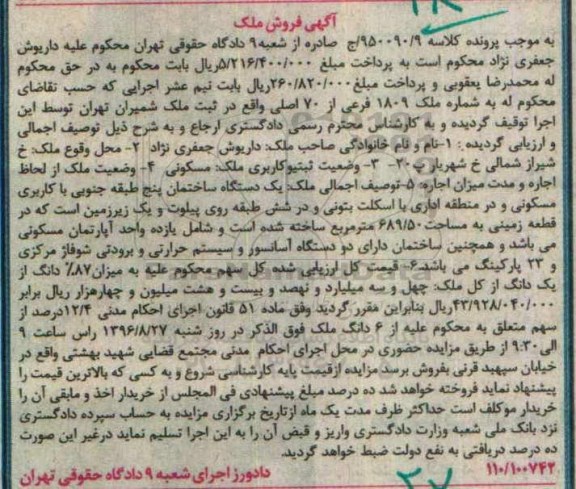 آگهی فروش ملک
به موجب پرونده کلاسه ۹۵۰۰۹۰/۹/ج صادره از شعبه۹ دادگاه حقوقی تهران محکوم علیه داریوش
جعفری نژاد محکوم است به پرداخت مبلغ ۵/۲۱۶/۴۰۰/۰۰۰ریال بابت محکوم به در حق محکوم
له محمدرضا یعقوبی و پرداخت مبلغ۲۶۰/۸۲۰/۰۰۰ریال بابت نیم عشر اجرایی که حسب تقاضای
محکوم له به شماره ملک ۱۸۰۹ فرعی از ۷۰ اصلی واقع در ثبت ملک شمیران تهران توسط این
اجرا توقیف گردیده و به کارشناس محترم رسمی دادگستری ارجاع و به شرح ذیل توصیف اجمالی
و ارزیابی گردیده: ۱-نام و نام خانوادگی صاحب ملک: داریوش جعفری نژاد ۲- محل وقوع ملک: خ
شیراز شمالی خ شهریار پ۳۰- ۳- وضعیت ثبتیوکاربری ملک: مسکونی ۴- وضعیت ملک از لحاظ
اجاره و مدت میزان اجاره: ۵-توصیف اجمالی ملک: یک دستگاه ساختمان پنج طبقه جنوبی با کاربری
مسکونی و در منطقه اداری با اسکلت بتونی و در شش طبقه روی پیلوت و یک زیرزمین است که در
قطعه زمینی به مساحت۶۸۹/۵۰ مترمربع ساخته شده است و شامل یازده واحد آپارتمان مسکونی
می باشد و همچنین ساختمان دارای دو دستگاه آسانسور و سیستم حرارتی و برودتی شوفاژ مرکزی
و ۲۳ پارکینگ می باشد.۶- قیمت کل ارزیابی شده کل سهم محکوم علیه به میزان۸۷٪ دانگ از
یک دانگ از کل ملک: چهل و سه میلیارد و نهصد و بیست و هشت میلیون و چهارهزار ریال برابر
۴۳/۹۲۸/۰۴۰/۰۰۰ریال بنابراین مقرر گردید وفق ماده ۵۱ قانون اجرای احکام مدنی ۱۲/۴درصد از
سهم متعلق به محکوم علیه از ۶ دانگ ملک فوق الذکر در روز شنبه ۱۳۹۶/۸/۲۷ راس ساعت ۹
الی۹:۳۰ از طریق مزایده حضوری در محل اجرای احکام مدنی مجتمع قضایی شهید بهشتی واقع در
خیابان سپهبد قرنی بفروش برسد مزایده ازقیمت پایه کارشناسی شروع و به کسی که بالاترین قیمت را
پیشنهاد نماید فروخته خواهد شد ده درصد مبلغ پیشنهادی فی المجلس از خریدار اخذ و مابقی آن را
خریدار موکلف است حداکثر ظرف مدت یک ماه ازتاریخ برگزاری مزایده به حساب سپرده دادگستری
نزد بانک ملی شعبه وزارت دادگستری واریز و قبض آن را به این اجرا تسلیم نماید درغیر این صورت
ده درصد دریافتی به نفع دولت ضبط خواهد گردید.
۱۱۰/۱۰۰۷۴۲
دادورز اجرای شعبه ۹ دادگاه حقوقی تهران